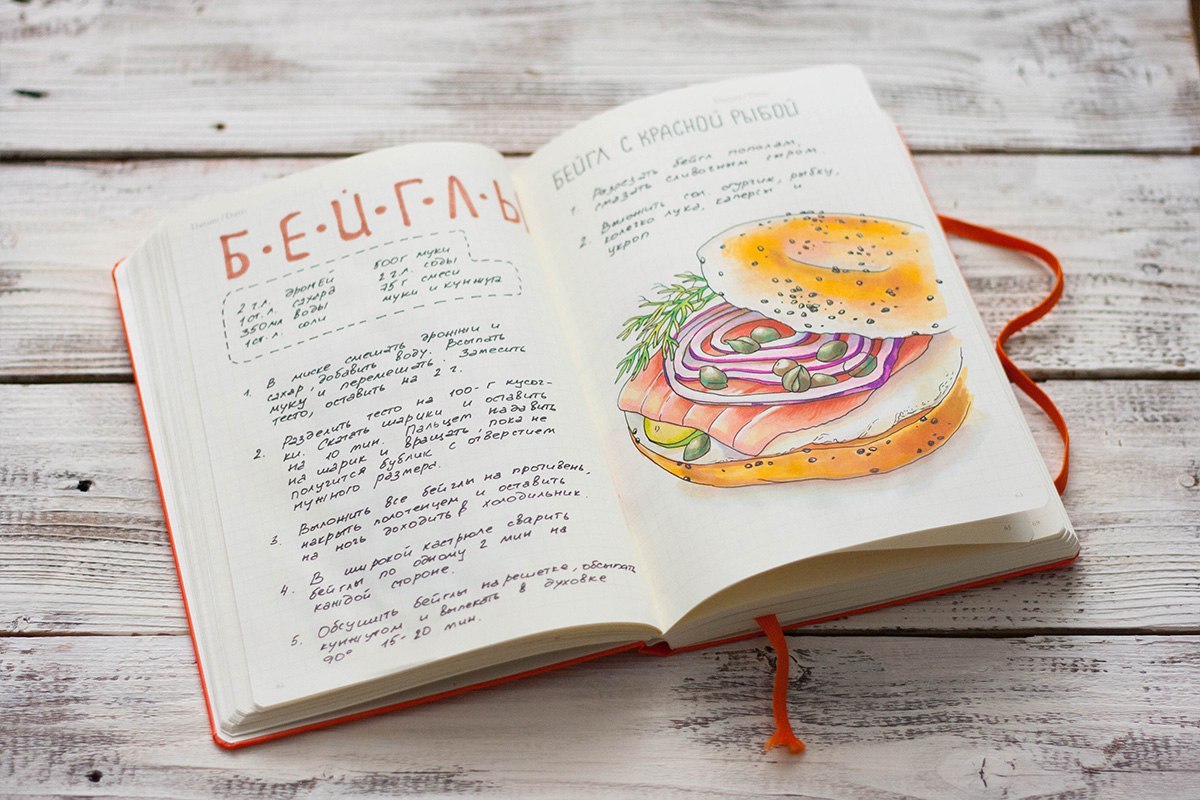 Б·Е·Й·Г·Л·Ы
2 ч.л. дрожжей
1 ст.л. сахара
350 мл воды
1 ст.л. соли
500 г муки
2 г.л. соды
25 г смеси
муки и кунжута
1. В миске смешать дрожжи и
сахар, добавить воду. Всыпать
муку и перемешать. Замесить
тесто, оставить на 2 г.
2. Разделить тесто на 100-г кусоч-
ки. Скатать шарики и оставить
на 10 мин. Пальцем надавить
на шарик и вращать, пока не
получится бублик с отверстием
нужного размера.
3. Выложить все бейглы на противень,
накрыть полотенцем и оставить
на ночь доходить в холодильник.
4. В широкой кастрюле сварить
бейглы по одному 2 мин на
каждой стороне.
5. Обсушить бейглы на решетке, обсыпать
кунжутом и выпекать в духовке
90° 15-20 мин.
БЕЙГЛ С КРАСНОЙ РЫБОЙ
1. Разрезать бейгл пополам,
смазать сливочным сыром.
2. Выложить сол. огурчик, рыбку,
колечко лука, каперсы и
укроп